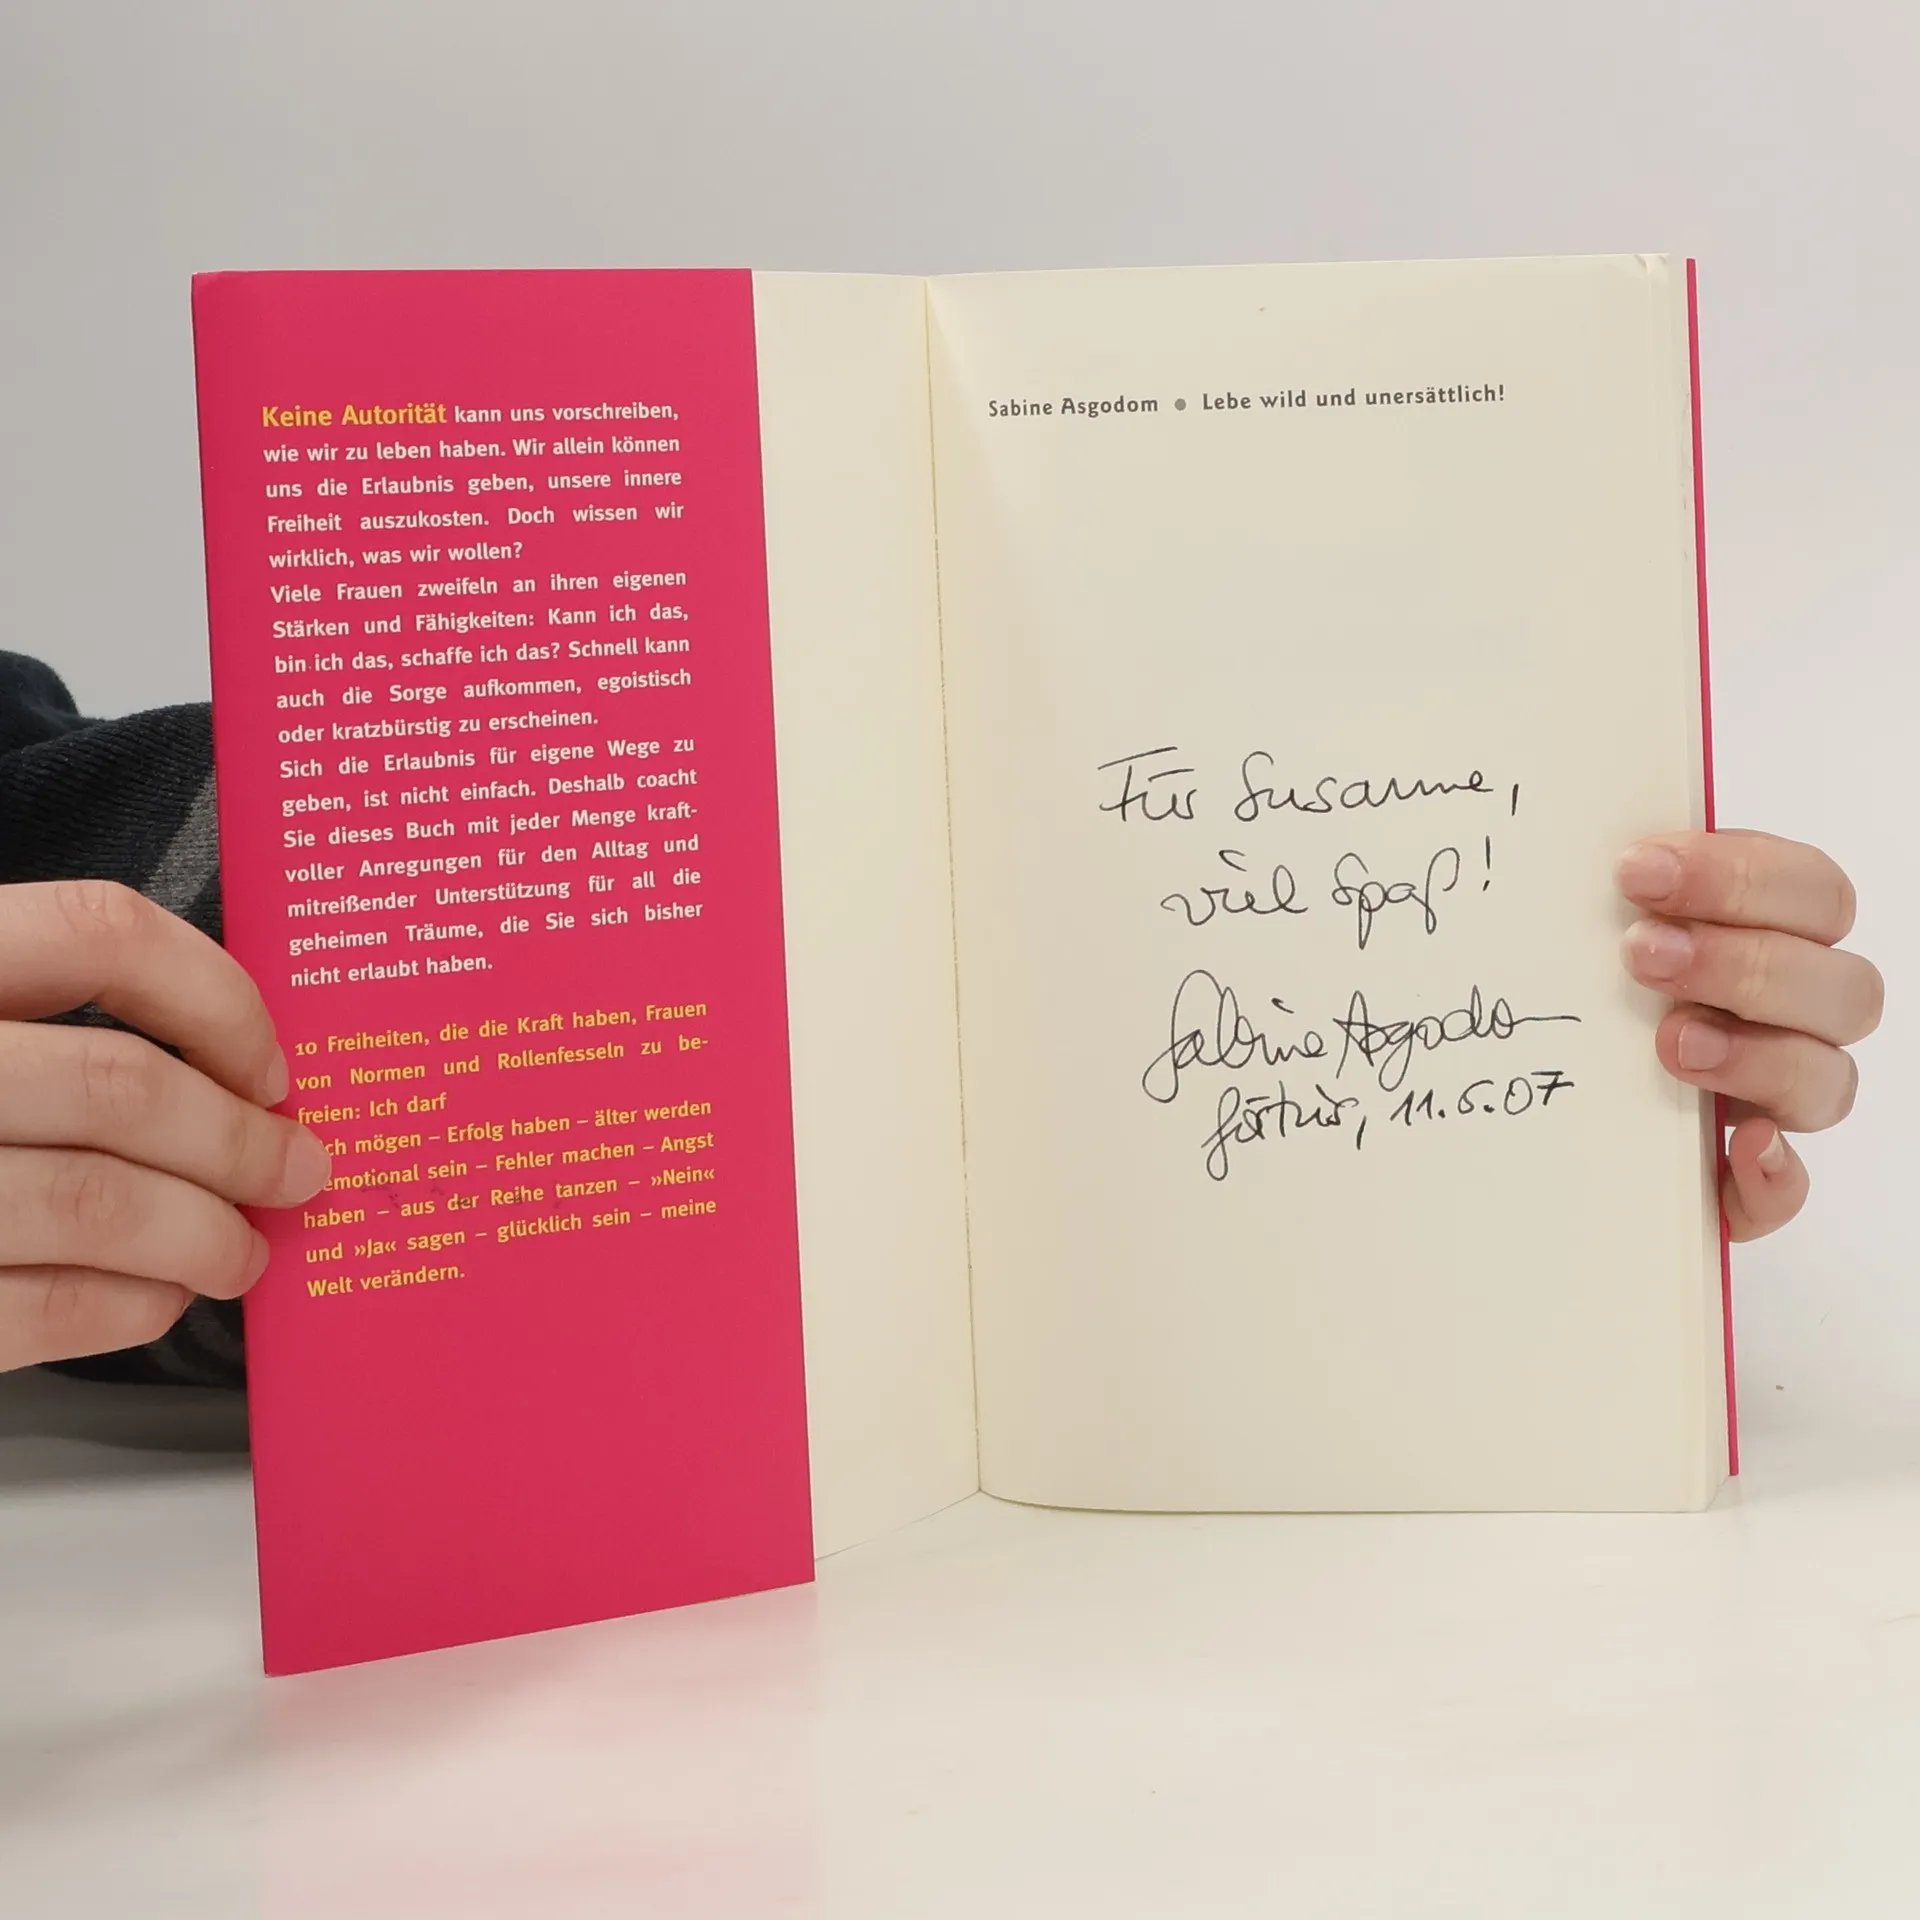 Keine Autorität kann uns vorschreiben,
wie wir zu leben haben. Wir allein können
uns die Erlaubnis geben, unsere innere
Freiheit auszukosten. Doch wissen wir
wirklich, was wir wollen?
Viele Frauen zweifeln an ihren eigenen
Stärken und Fähigkeiten: Kann ich das,
bin ich das, schaffe ich das? Schnell kann
auch die Sorge aufkommen, egoistisch
oder kratzbürstig zu erscheinen.
Sich die Erlaubnis für eigene Wege zu
geben, ist nicht einfach. Deshalb coacht
Sie dieses Buch mit jeder Menge kraft-
voller Anregungen für den Alltag und
mitreißender Unterstützung für all die
geheimen Träume, die Sie sich bisher
nicht erlaubt haben.
10 Freiheiten, die die Kraft haben, Frauen
von Normen und Rollenfesseln zu be-
freien: Ich darf
mögen – Erfolg haben – älter werden
emotional sein – Fehler machen – Angst
haben – aus der Reihe tanzen – »Nein«
und »Ja« sagen – glücklich sein – meine
Welt verändern.
Sabine Asgodom • Lebe wild und unersättlich!
Für Susanne,
viel Spaß!
Sabine Asgodom
11.5.07